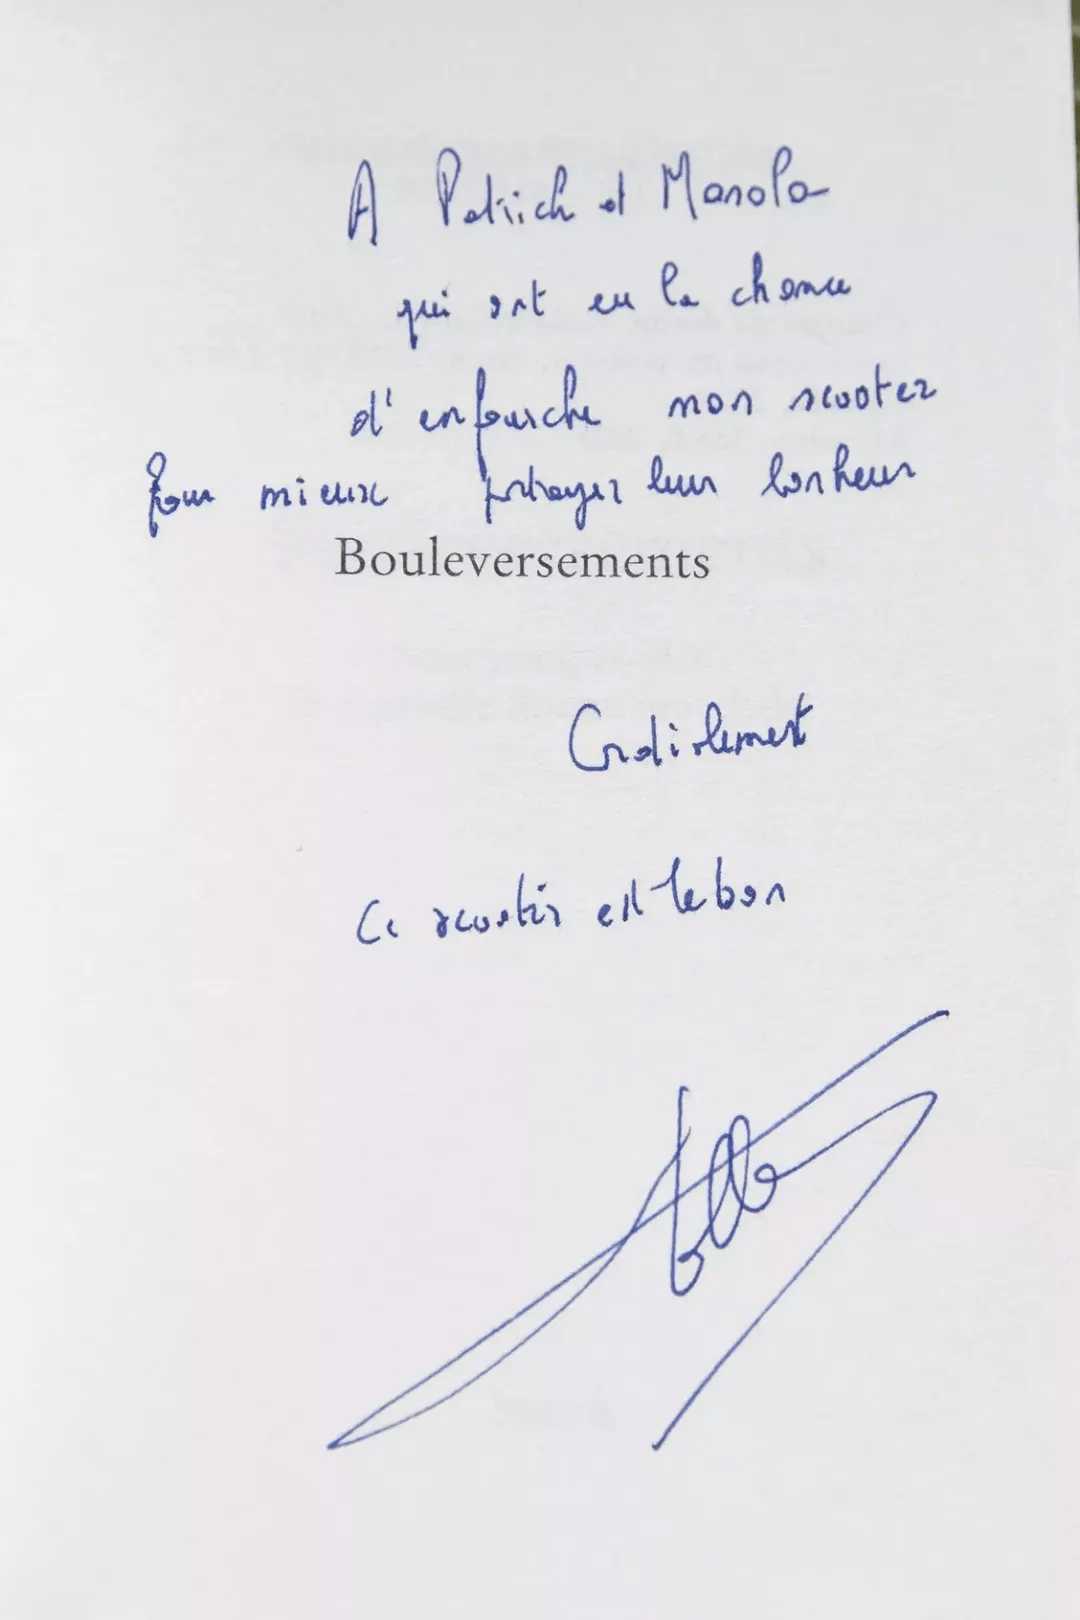 A Patrick et Manola
qui ont eu la chance
d'enfourche mon scooter
pour mieux protéger leur bonheur
Bouleversements
Cordialement
Ce scooter est le bon